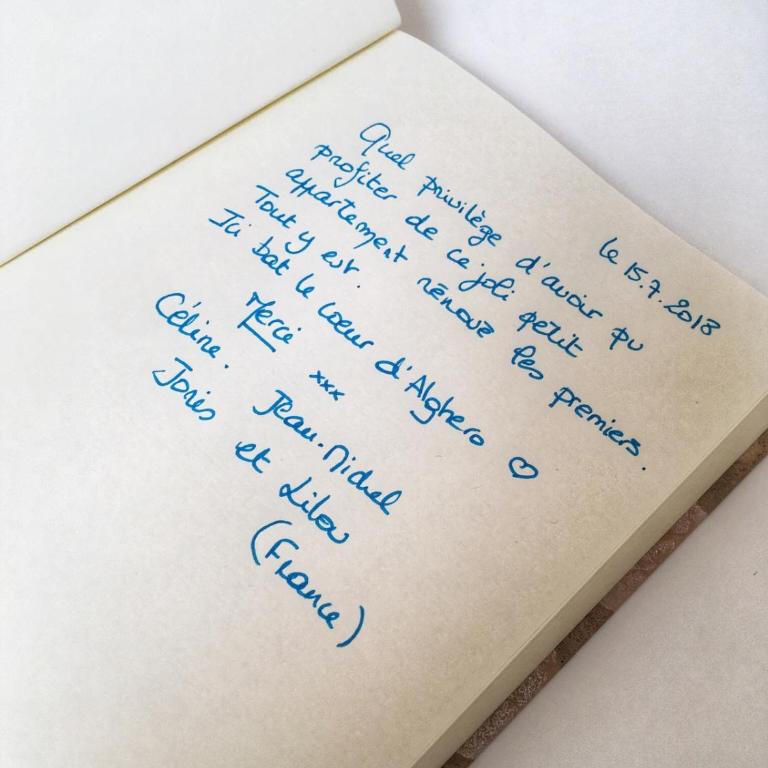 le 15.7.2018
Quel privilège d'avoir pu
profiter de ce joli petit
appartement rénové les premiers.
Tout y est.
Ici bat le coeur d'Alghero ♡
Merci xxx
Céline. Jean-Michel
Joris et Lilou
(France)